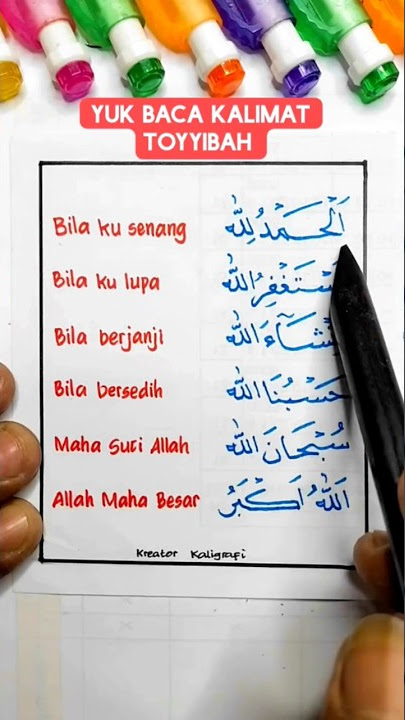 YUK BACA KALIMAT
TOYYIBAH
Bila ku senang اَلْحَمْدُ لِلّٰه
Bila ku lupa اللّٰه
Bila berjanji اللّٰه
Bila bersedih حَسْبُنَا اللّٰه
Maha Suci Allah سُبْحَانَ اللّٰه
Allah Maha Besar اَللّٰهُ اَكْبَرُ
Kreator Kaligrafi